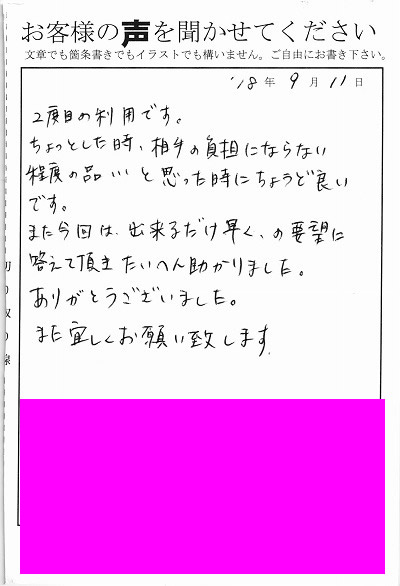 お客様の声を聞かせてください
文章でも箇条書きでもイラストでも構いません。ご自由にお書き下さい。
'18年 9月 11日
2度目の利用です。
ちょっとした時、相手の負担にならない
程度の品…と思った時にちょうど良い
です。
また今回は、出来るだけ早く、の要望に
答えて頂きたいへん助かりました。
ありがとうございました。
また宜しくお願い致します
切り取り線